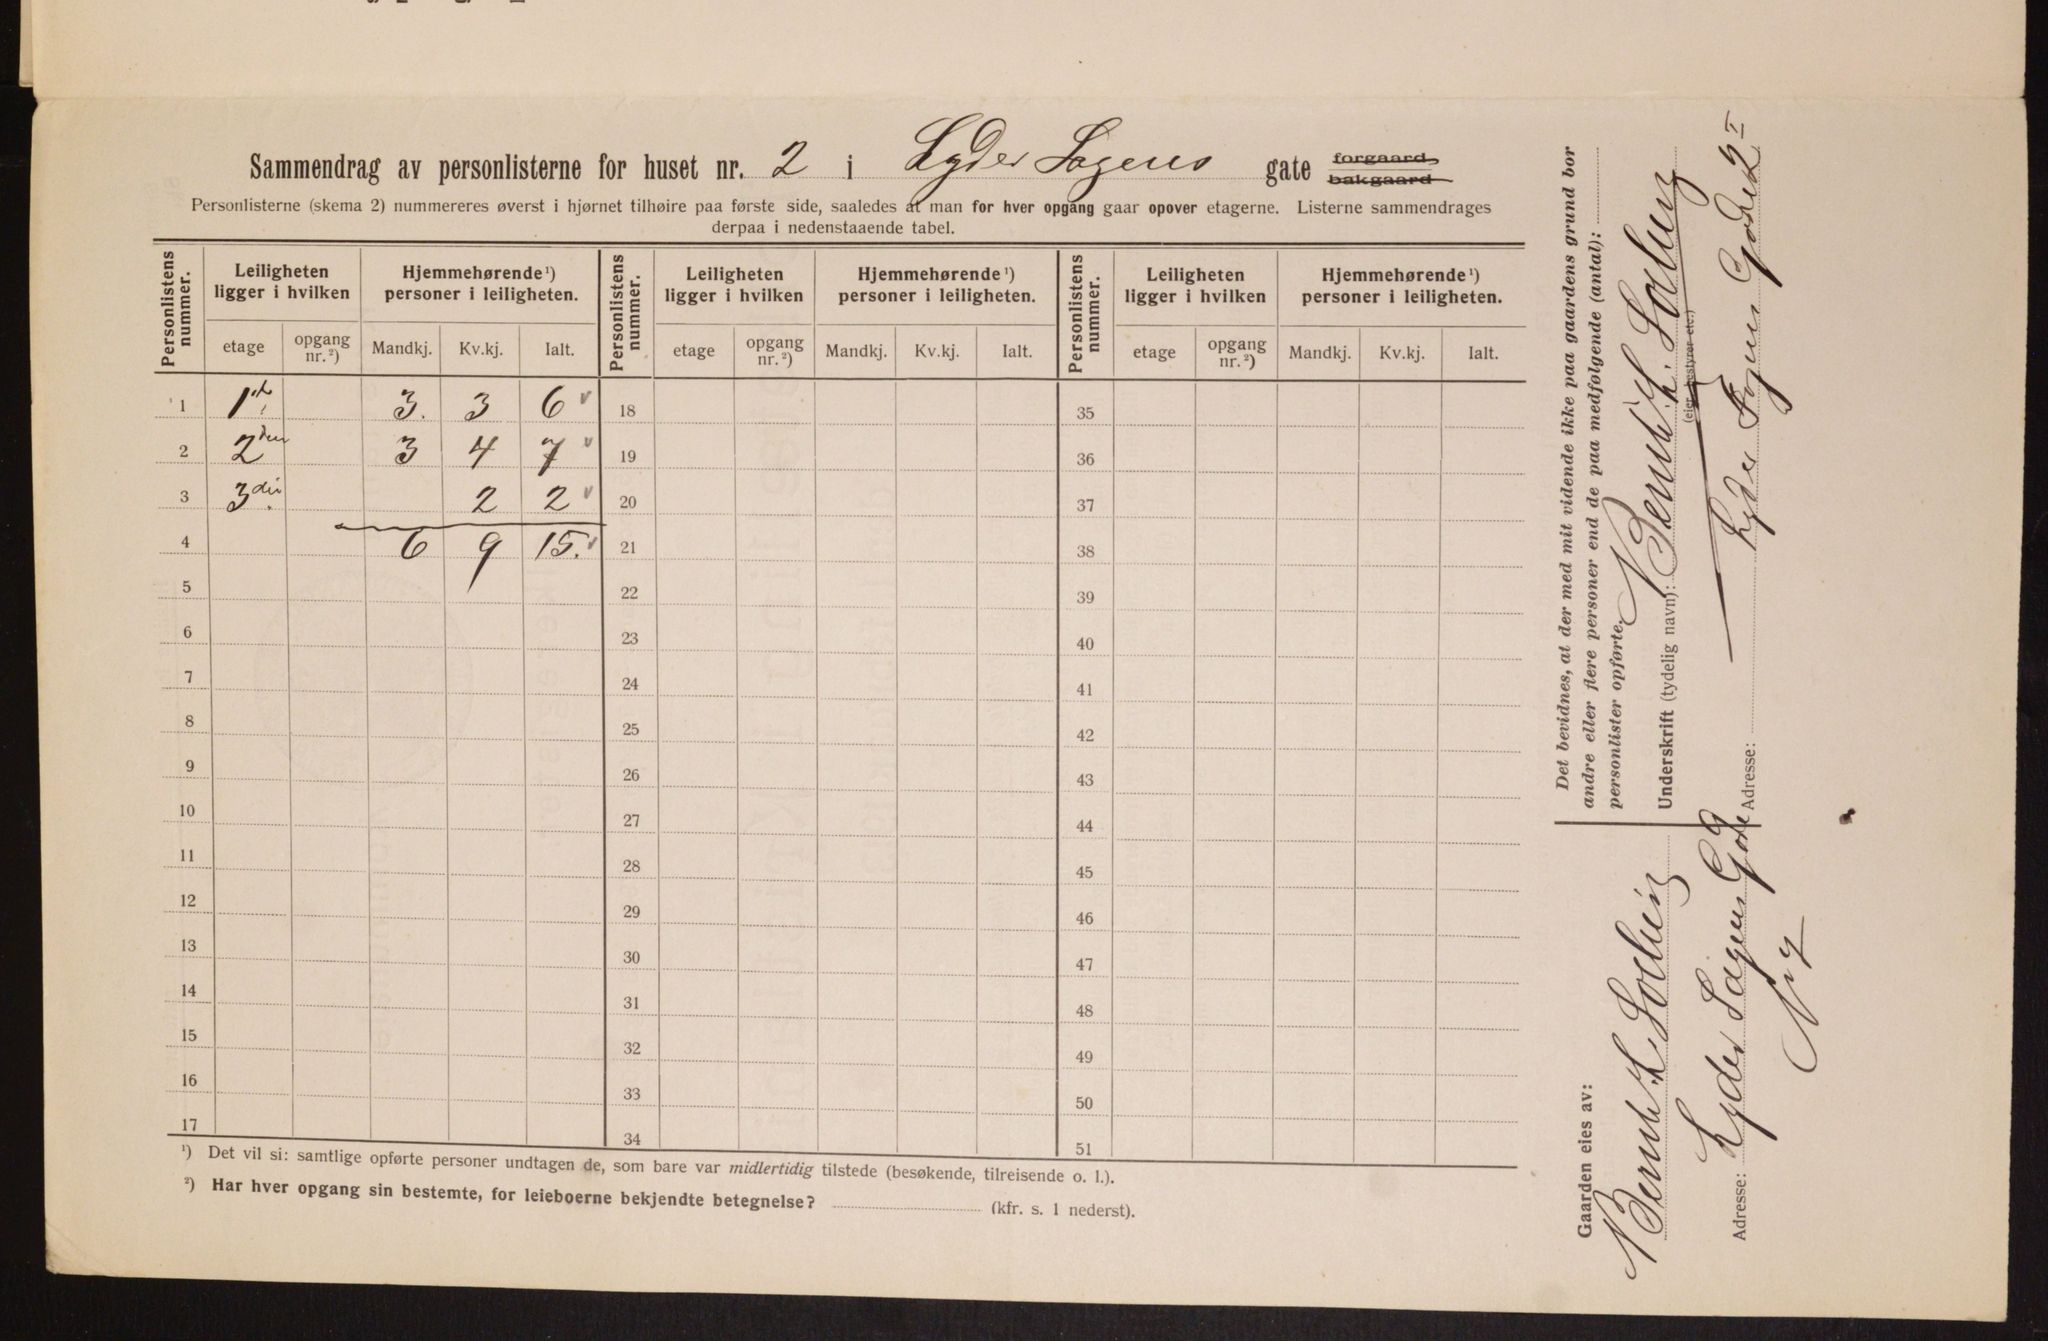 Sammendrag av personlisterne for huset nr. 2 i Lyder Sagens gate forgaard bakgaard
Personlisterne (skema 2) nummereres øverst i hjørnet tilhøire paa første side, saaledes at man for hver opgang gaar opover etagerne. Listerne sammendrages
derpaa i nedenstaaende tabel.
Personlistens nummer. Leiligheten ligger i hvilken Hjemmehørende ¹) personer i leiligheten. Personlistens nummer. Leiligheten ligger i hvilken Hjemmehørende ¹) personer i leiligheten. Personlistens nummer. Leiligheten ligger i hvilken Hjemmehørende ¹) personer i leiligheten.
etage opgang nr. ²) Mandkj. Kv.kj. Ialt. etage opgang nr. ²) Mandkj. Kv.kj. Ialt. etage opgang nr. ²) Mandkj. Kv.kj. Ialt.
1 1ste 3. 3 6 18 35
2 2den 3 4 7 19 36
3 3die 2 2 20 37
4 6 9 15. 21 38
5 22 39
6 23 40
7 24 41
8 25 42
9 26 43
10 27 44
11 28 45
12 29 46
13 30 47
14 31 48
15 32 49
16 33 50
17 34 51
¹) Det vil si: samtlige opførte personer undtagen de, som bare var midlertidig tilstede (besøkende, tilreisende o. l.).
²) Har hver opgang sin bestemte, for leieboerne bekjendte betegnelse? (kfr. s. 1 nederst).
Det bevidnes, at der med mit vidende ikke paa gaardens grund bor
andre eller flere personer end de paa medfølgende (antal):
personlister opførte.
Underskrift (tydelig navn):
(eier, bestyrer etc.)
Adresse: Lyder Sagens Gade 2 I
Gaarden eies av:
Adresse: Lyder Sagens Gade
No 2